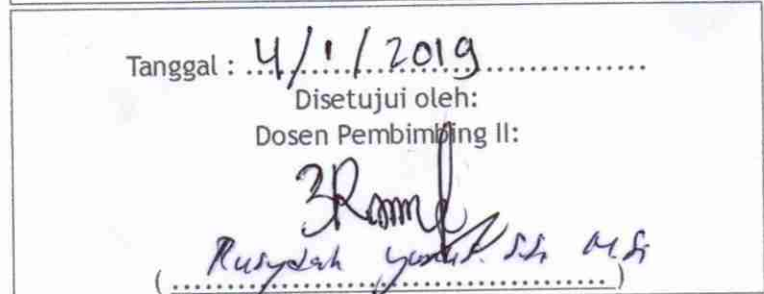 Tanggal : 4/1/2019
Disetujui oleh:
Dosen Pembimbing II:
( Rusydah S.Si M.Si )